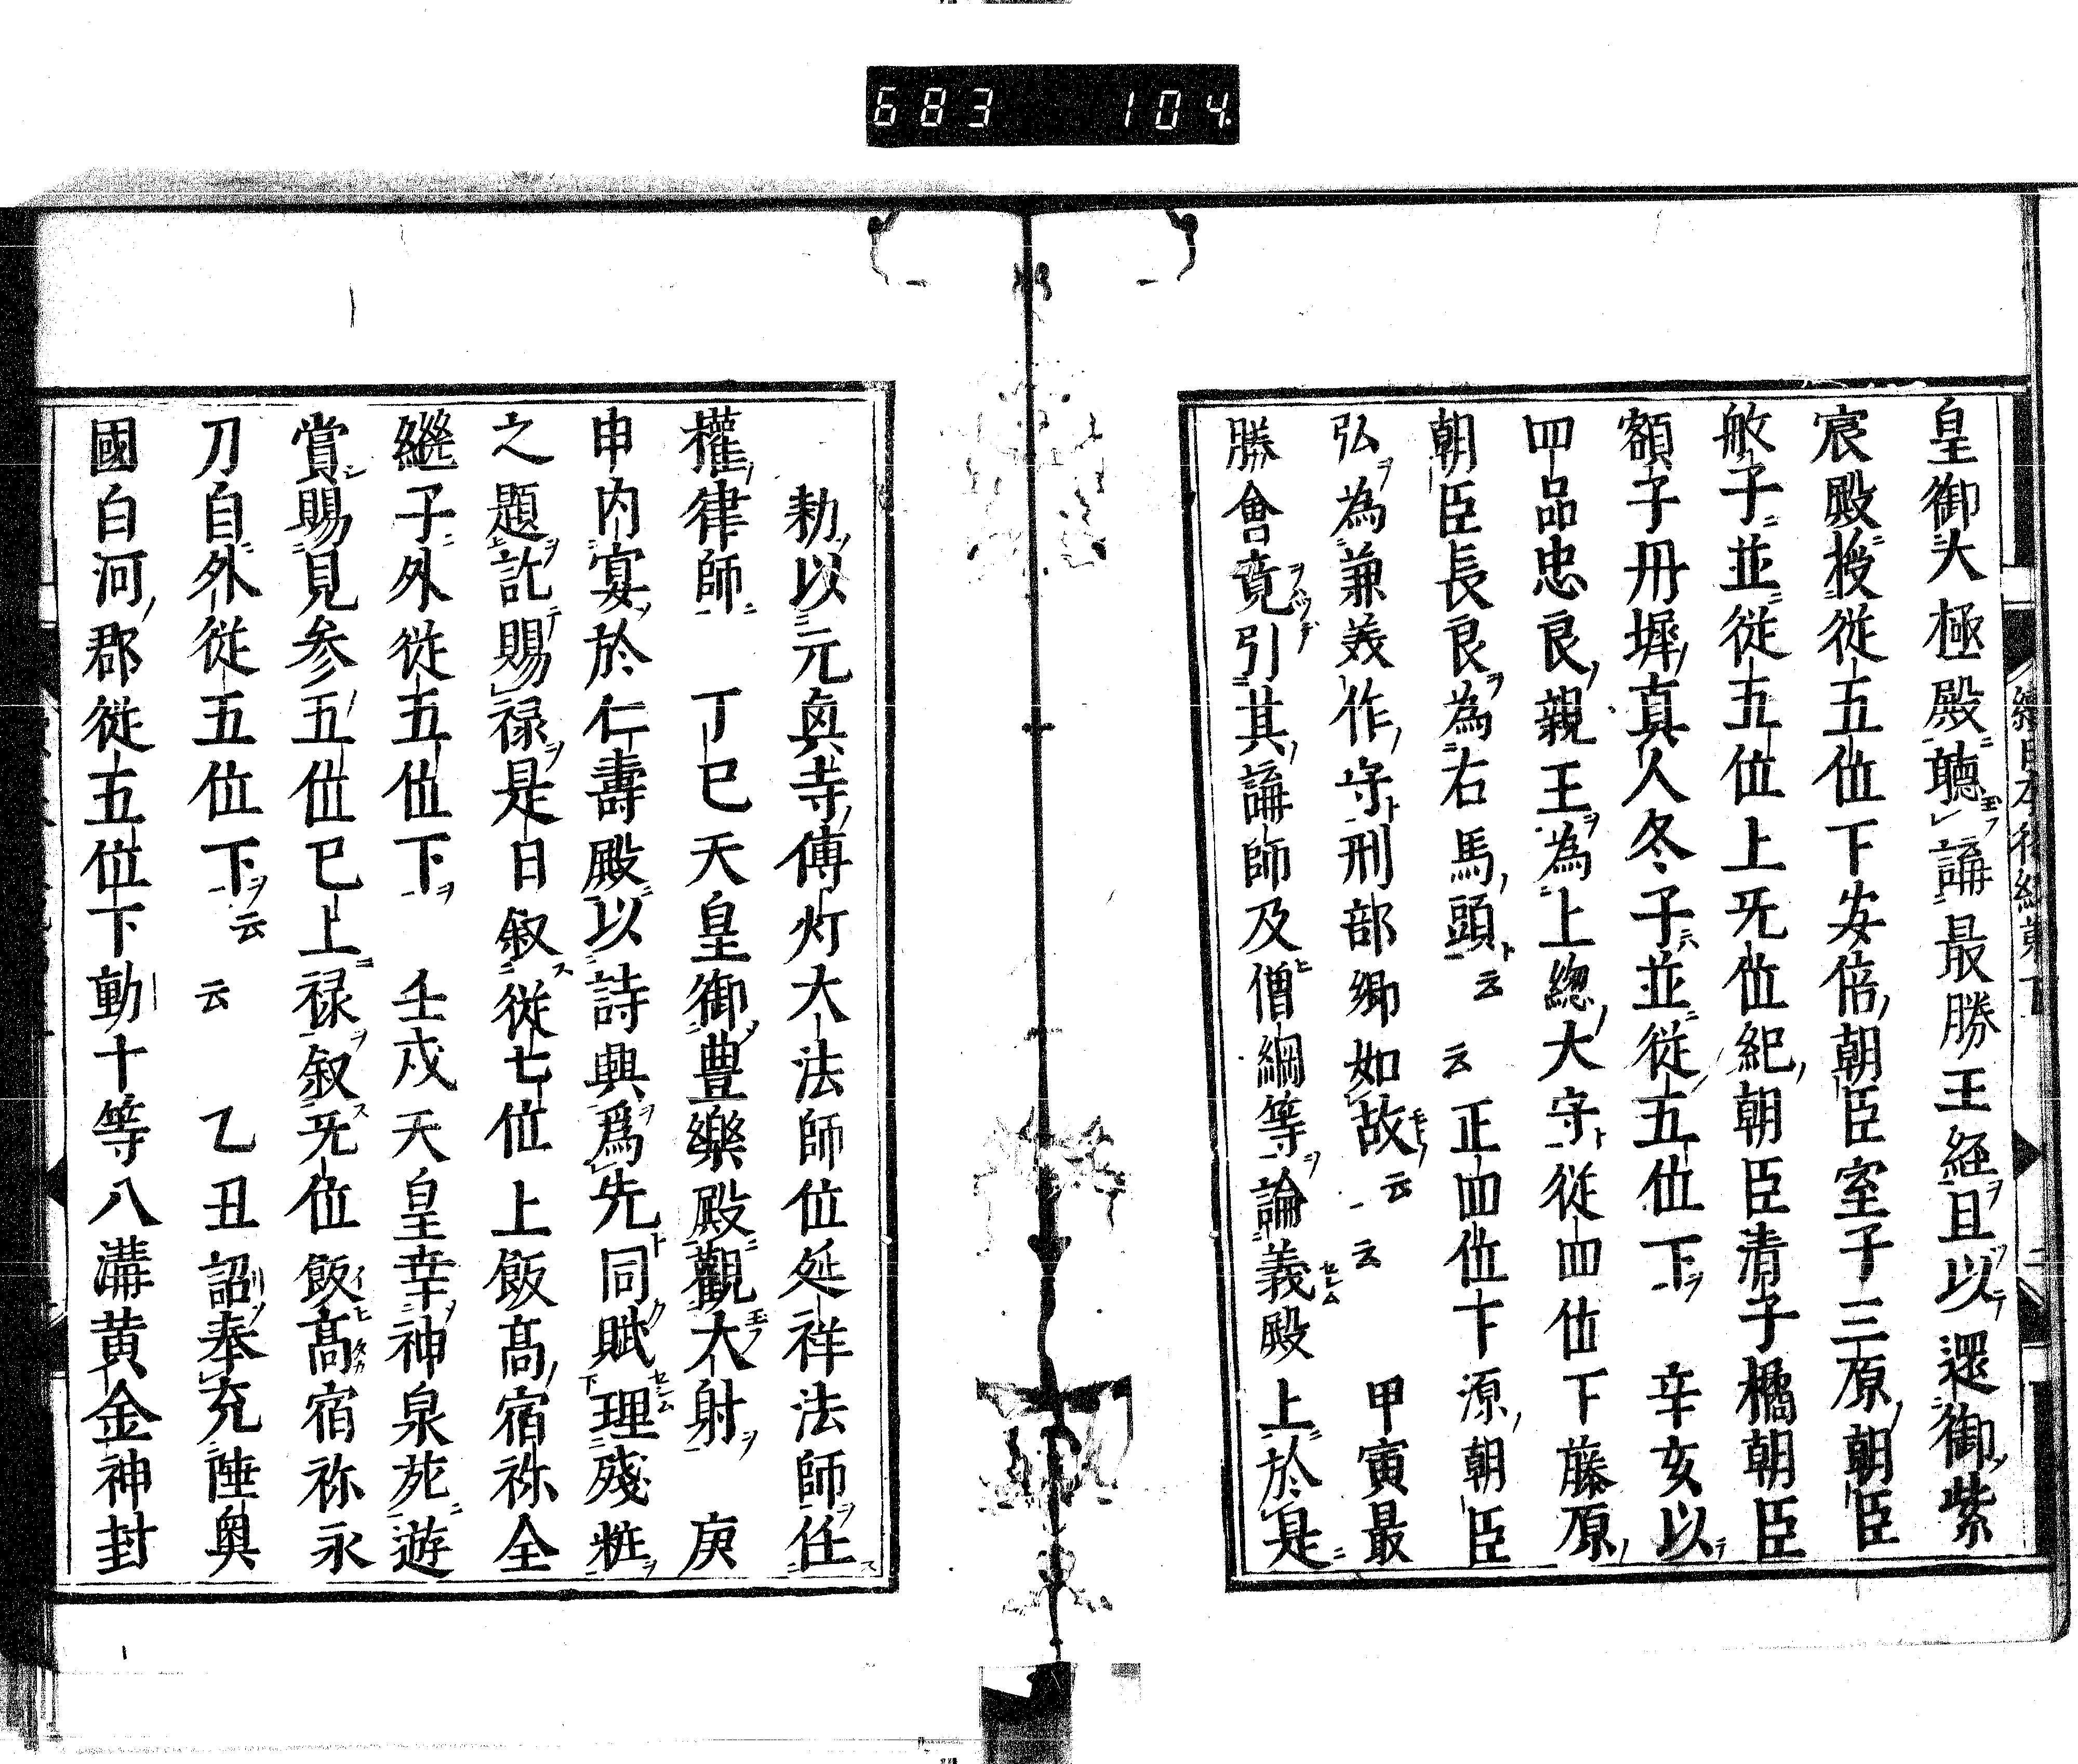 683 104
皇御大極殿聴講最勝王経且以還御紫
宸殿授従五位下安倍朝臣室子三原朝臣
敏子並従五位上旡位紀朝臣清子橘朝臣
額子丹墀真人冬子並従五位下 辛亥以
四品忠良親王為上総大守従四位下藤原
朝臣長良為右馬頭云云正四位下源朝臣
弘為兼美作守刑部卿如故云云 甲寅最
勝會竟引其講師及僧綱等論義殿上於是
勅以元興寺傳灯大法師位延祥法師任
權律師 丁巳天皇御豊樂殿觀大射 庚
申内宴於仁壽殿以詩興爲先同賦理殘粧
之題訖賜禄是日叙従七位上飯髙宿祢全
継子外従五位下 壬戌天皇幸神泉苑遊
賞賜見参五位已上禄叙旡位飯髙宿祢永
刀自外従五位下云云 乙丑詔奉充陸奥
國白河郡従五位下勳十等八溝黄金神封